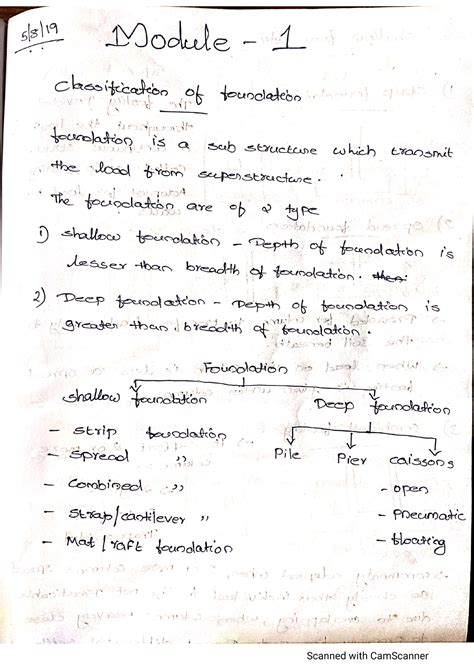 5/8/19
Module - 1
Classification of foundation
foundation is a sub structure which transmit
the load from superstructure.
The foundation are of 2 type
1) shallow foundation - Depth of foundation is
lesser than breadth of foundation.
2) Deep foundation - Depth of foundation is
greater than breadth of foundation.
Foundation
shallow foundation
Deep foundation
- strip foundation
- spread ,,
- Combined ,,
- strap/cantilever ,,
- Mat/raft foundation
Pile
Pier
caissons
- open
- pneumatic
- floating
Scanned with CamScanner